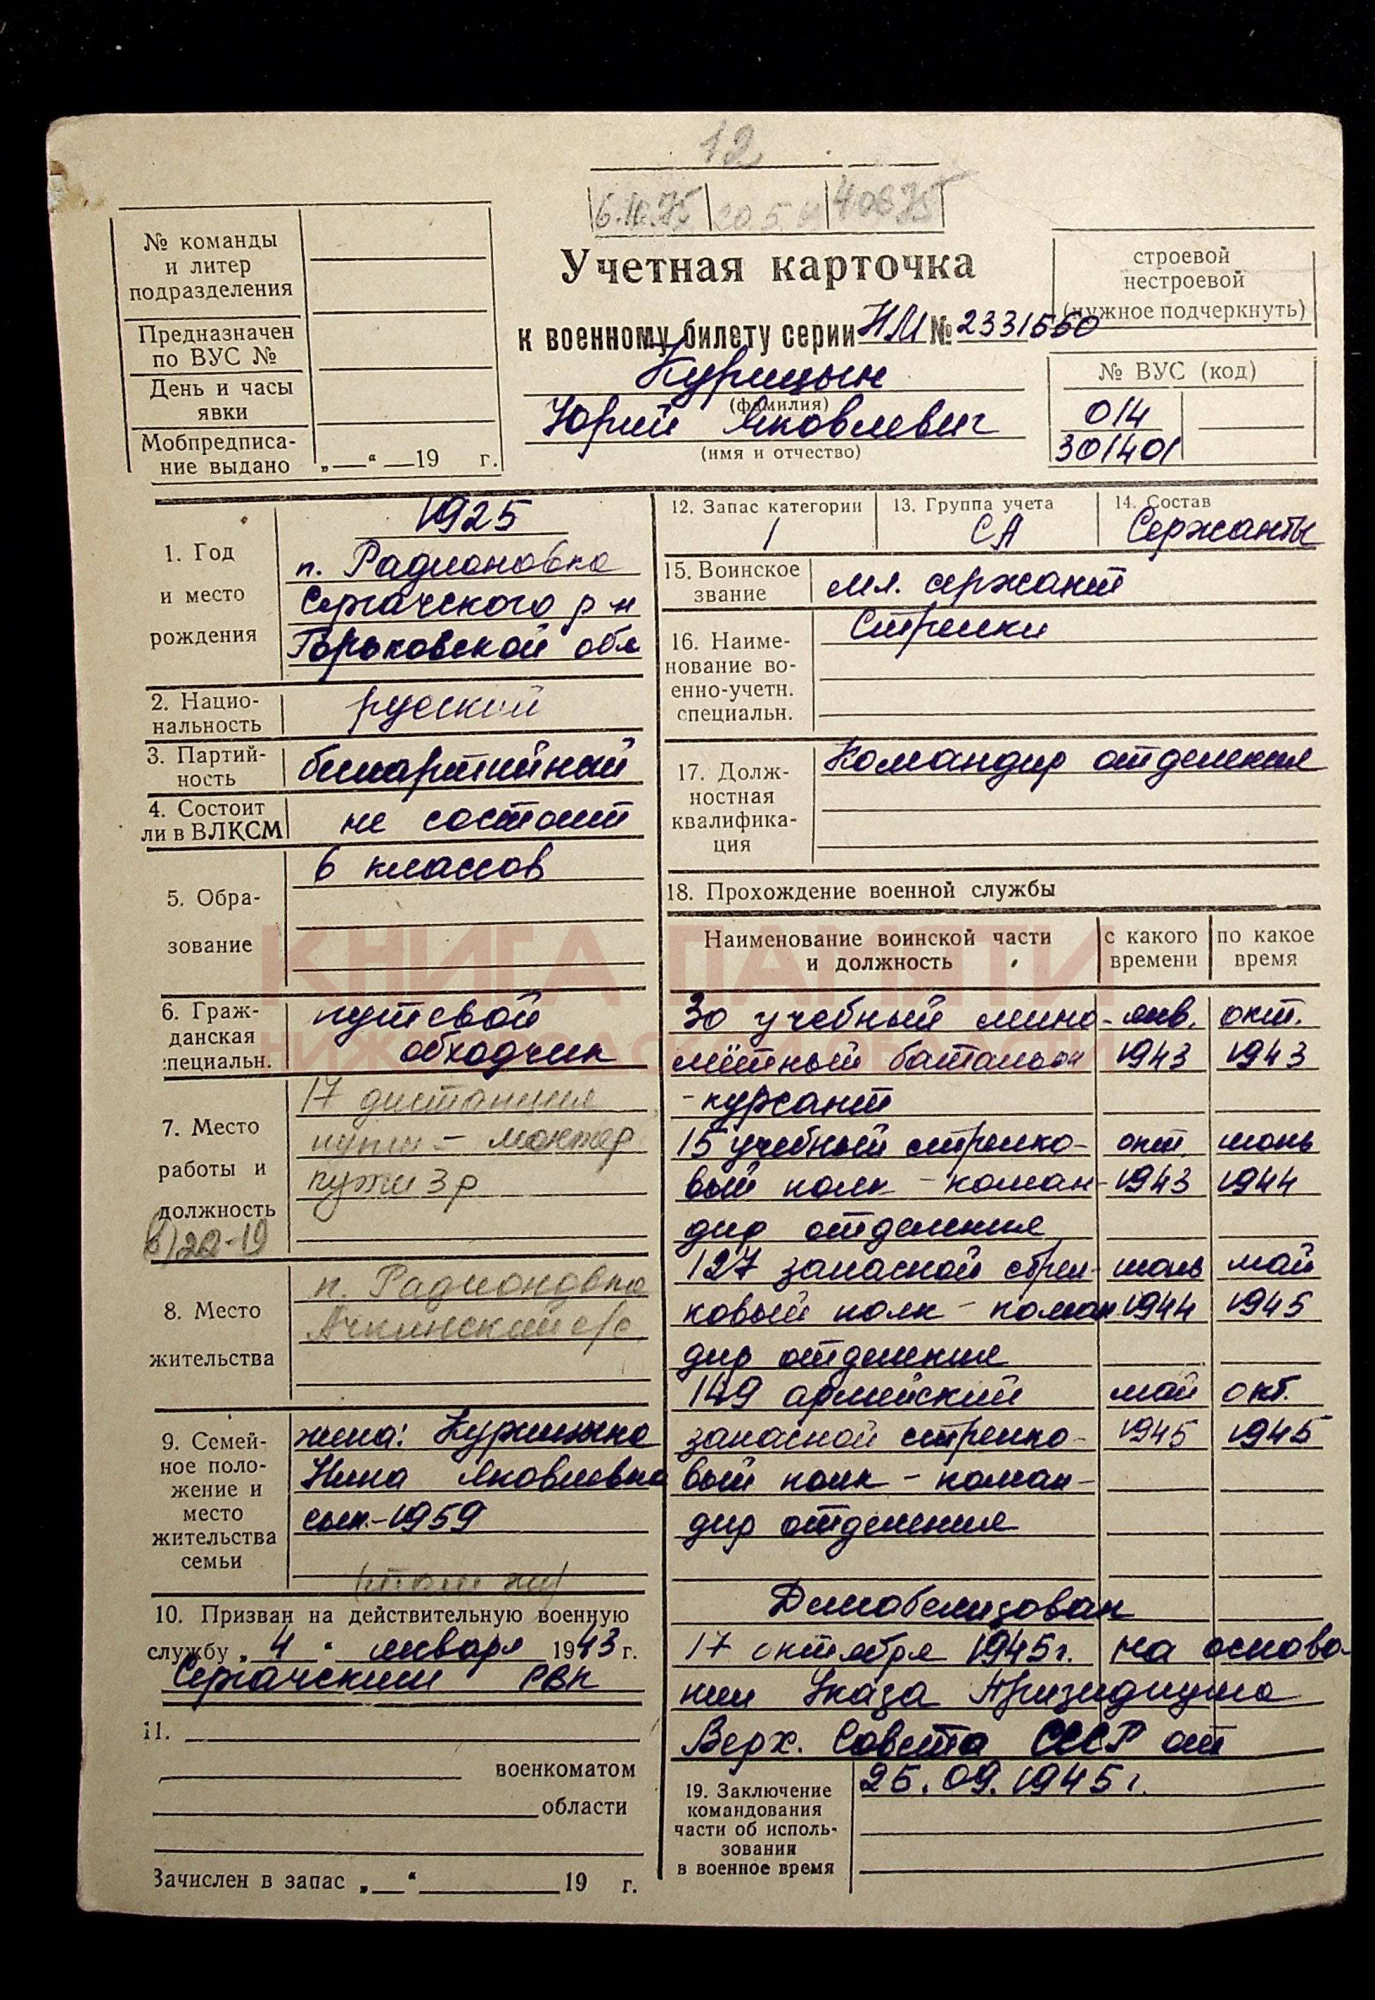 12
6.10.75 20.5. 40675
№ команды
и литер
подразделения
Предназначен
по ВУС №
День и часы
явки
Мобпредписа-
ние выдано „—“ — 19 г.
Учетная карточка
к военному билету серии НМ № 2331550
Курицын
(фамилия)
Юрий Яковлевич
(имя и отчество)
строевой
нестроевой
(нужное подчеркнуть)
№ ВУС (код)
014
301401
1. Год
и место
рождения
1925
п. Радионовка
Сергачского р-н
Горьковской обл
2. Нацио-
нальность
русский
3. Партий-
ность
беспартийный
4. Состоит
ли в ВЛКСМ
не состоит
5. Обра-
зование
6 классов
6. Граж-
данская
специальн.
путевой
обходчик
7. Место
работы и
должность
17 дистанция
пути - монтер
пути 3 р
8. Место
жительства
п. Радионовка
Ачкинский с/с
9. Семей-
ное поло-
жение и
место
жительства
семьи
жена:
Нина Яковлевна
сын-1959
(там же)
10. Призван на действительную военную
службу „4“ января 1943 г.
Сергачским РВК
11.
военкоматом
области
Зачислен в запас „—“ 19 г.
12. Запас категории
1
13. Группа учета
СА
14. Состав
Сержанты
15. Воинское
звание
мл. сержант
16. Наиме-
нование во-
енно-учетн.
специальн.
Стрелки
17. Долж-
ностная
квалифика-
ция
Командир отделения
18. Прохождение военной службы
Наименование воинской части
и должность
с какого
времени
по какое
время
30 учебный мино- янв. окт.
мётный батальон 1943 1943
- курсант
15 учебный стрелко- окт. июнь
вый полк - коман- 1943 1944
дир отделения
127 запасной стрел- июнь май
ковый полк - коман 1944 1945
дир отделения
149 армейский май окт.
запасной стрелко- 1945 1945
вый полк - коман-
дир отделения
Демобелизован
17 октября 1945г. на основа-
нии Указа Призидиума
Верх. Совета СССР от
25.09.1945г.
19. Заключение
командования
части об исполь-
зовании
в военное время
КНИГА ПАМЯТИ
НИЖЕГОРОДСКОЙ ОБЛАСТИ